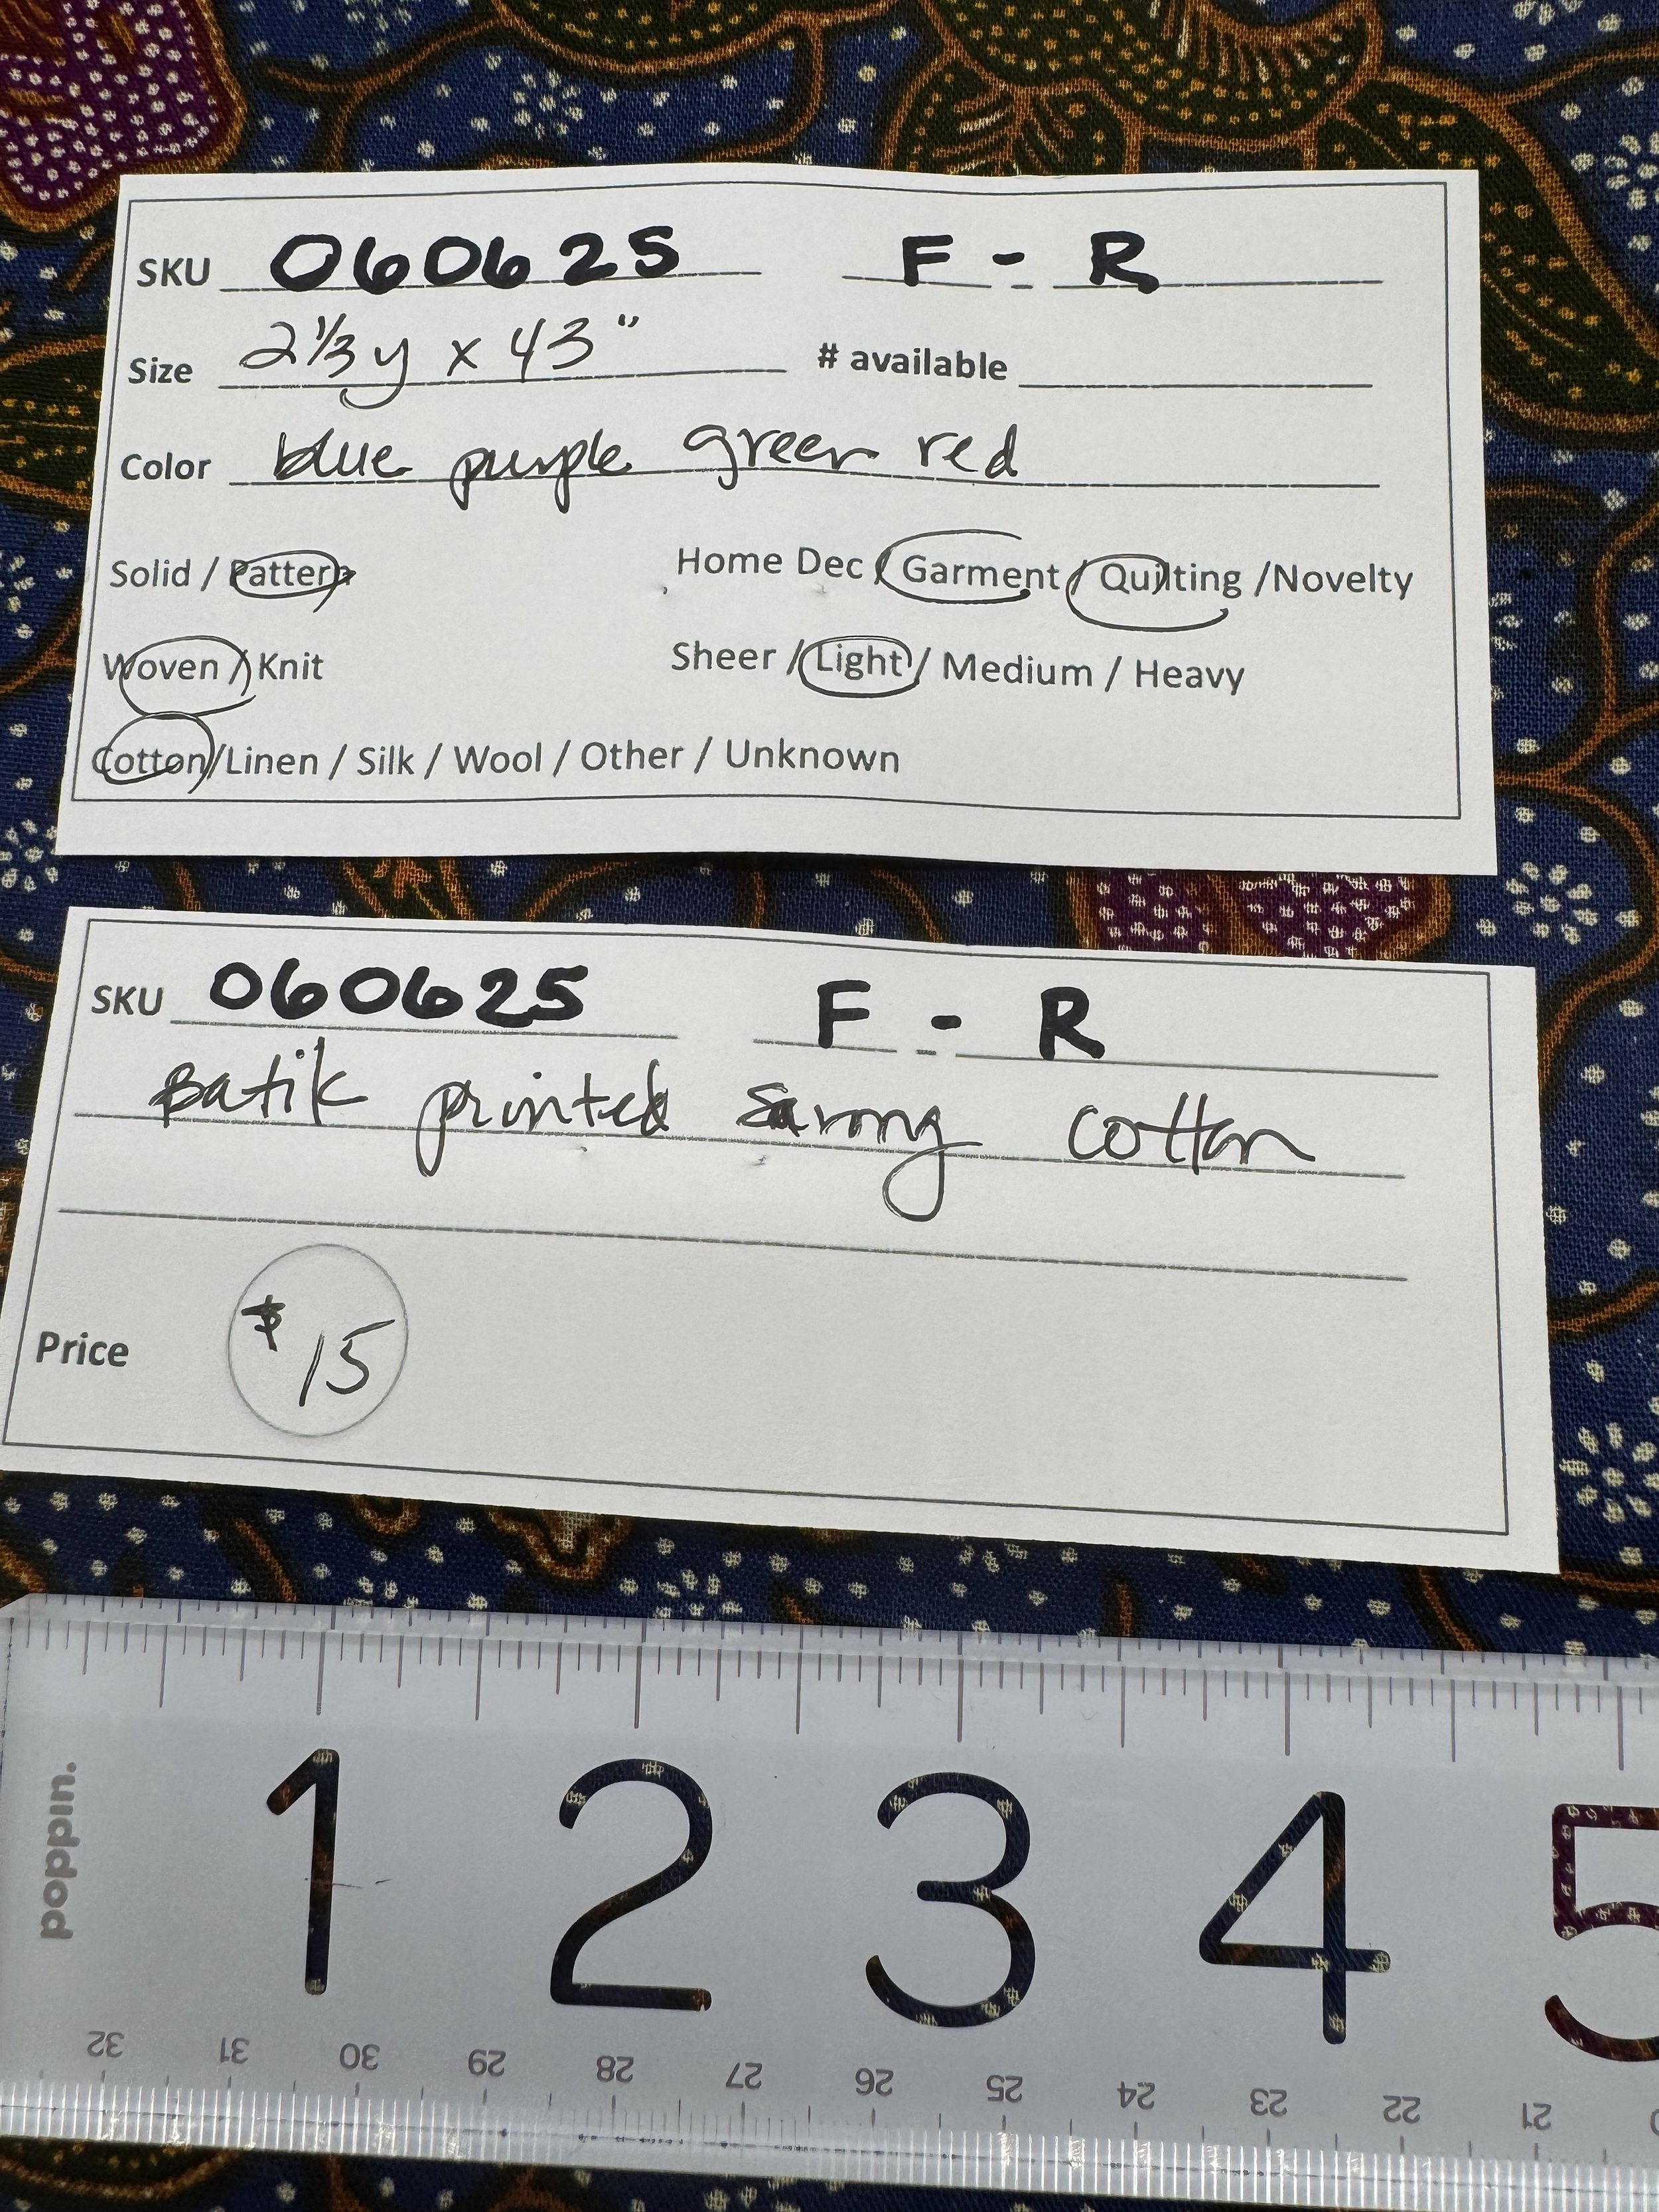 SKU 060625 F - R
Size 2 1/3 y x 43" # available
Color blue purple green red
Solid / Pattern Home Dec / Garment / Quilting /Novelty
Woven / Knit Sheer / Light / Medium / Heavy
Cotton/Linen / Silk / Wool / Other / Unknown
SKU 060625 F - R
Batik printed sarong cotton
Price $15
poppin.
1 2 3 4 5
32 31 30 29 28 27 26 25 24 23 22 21